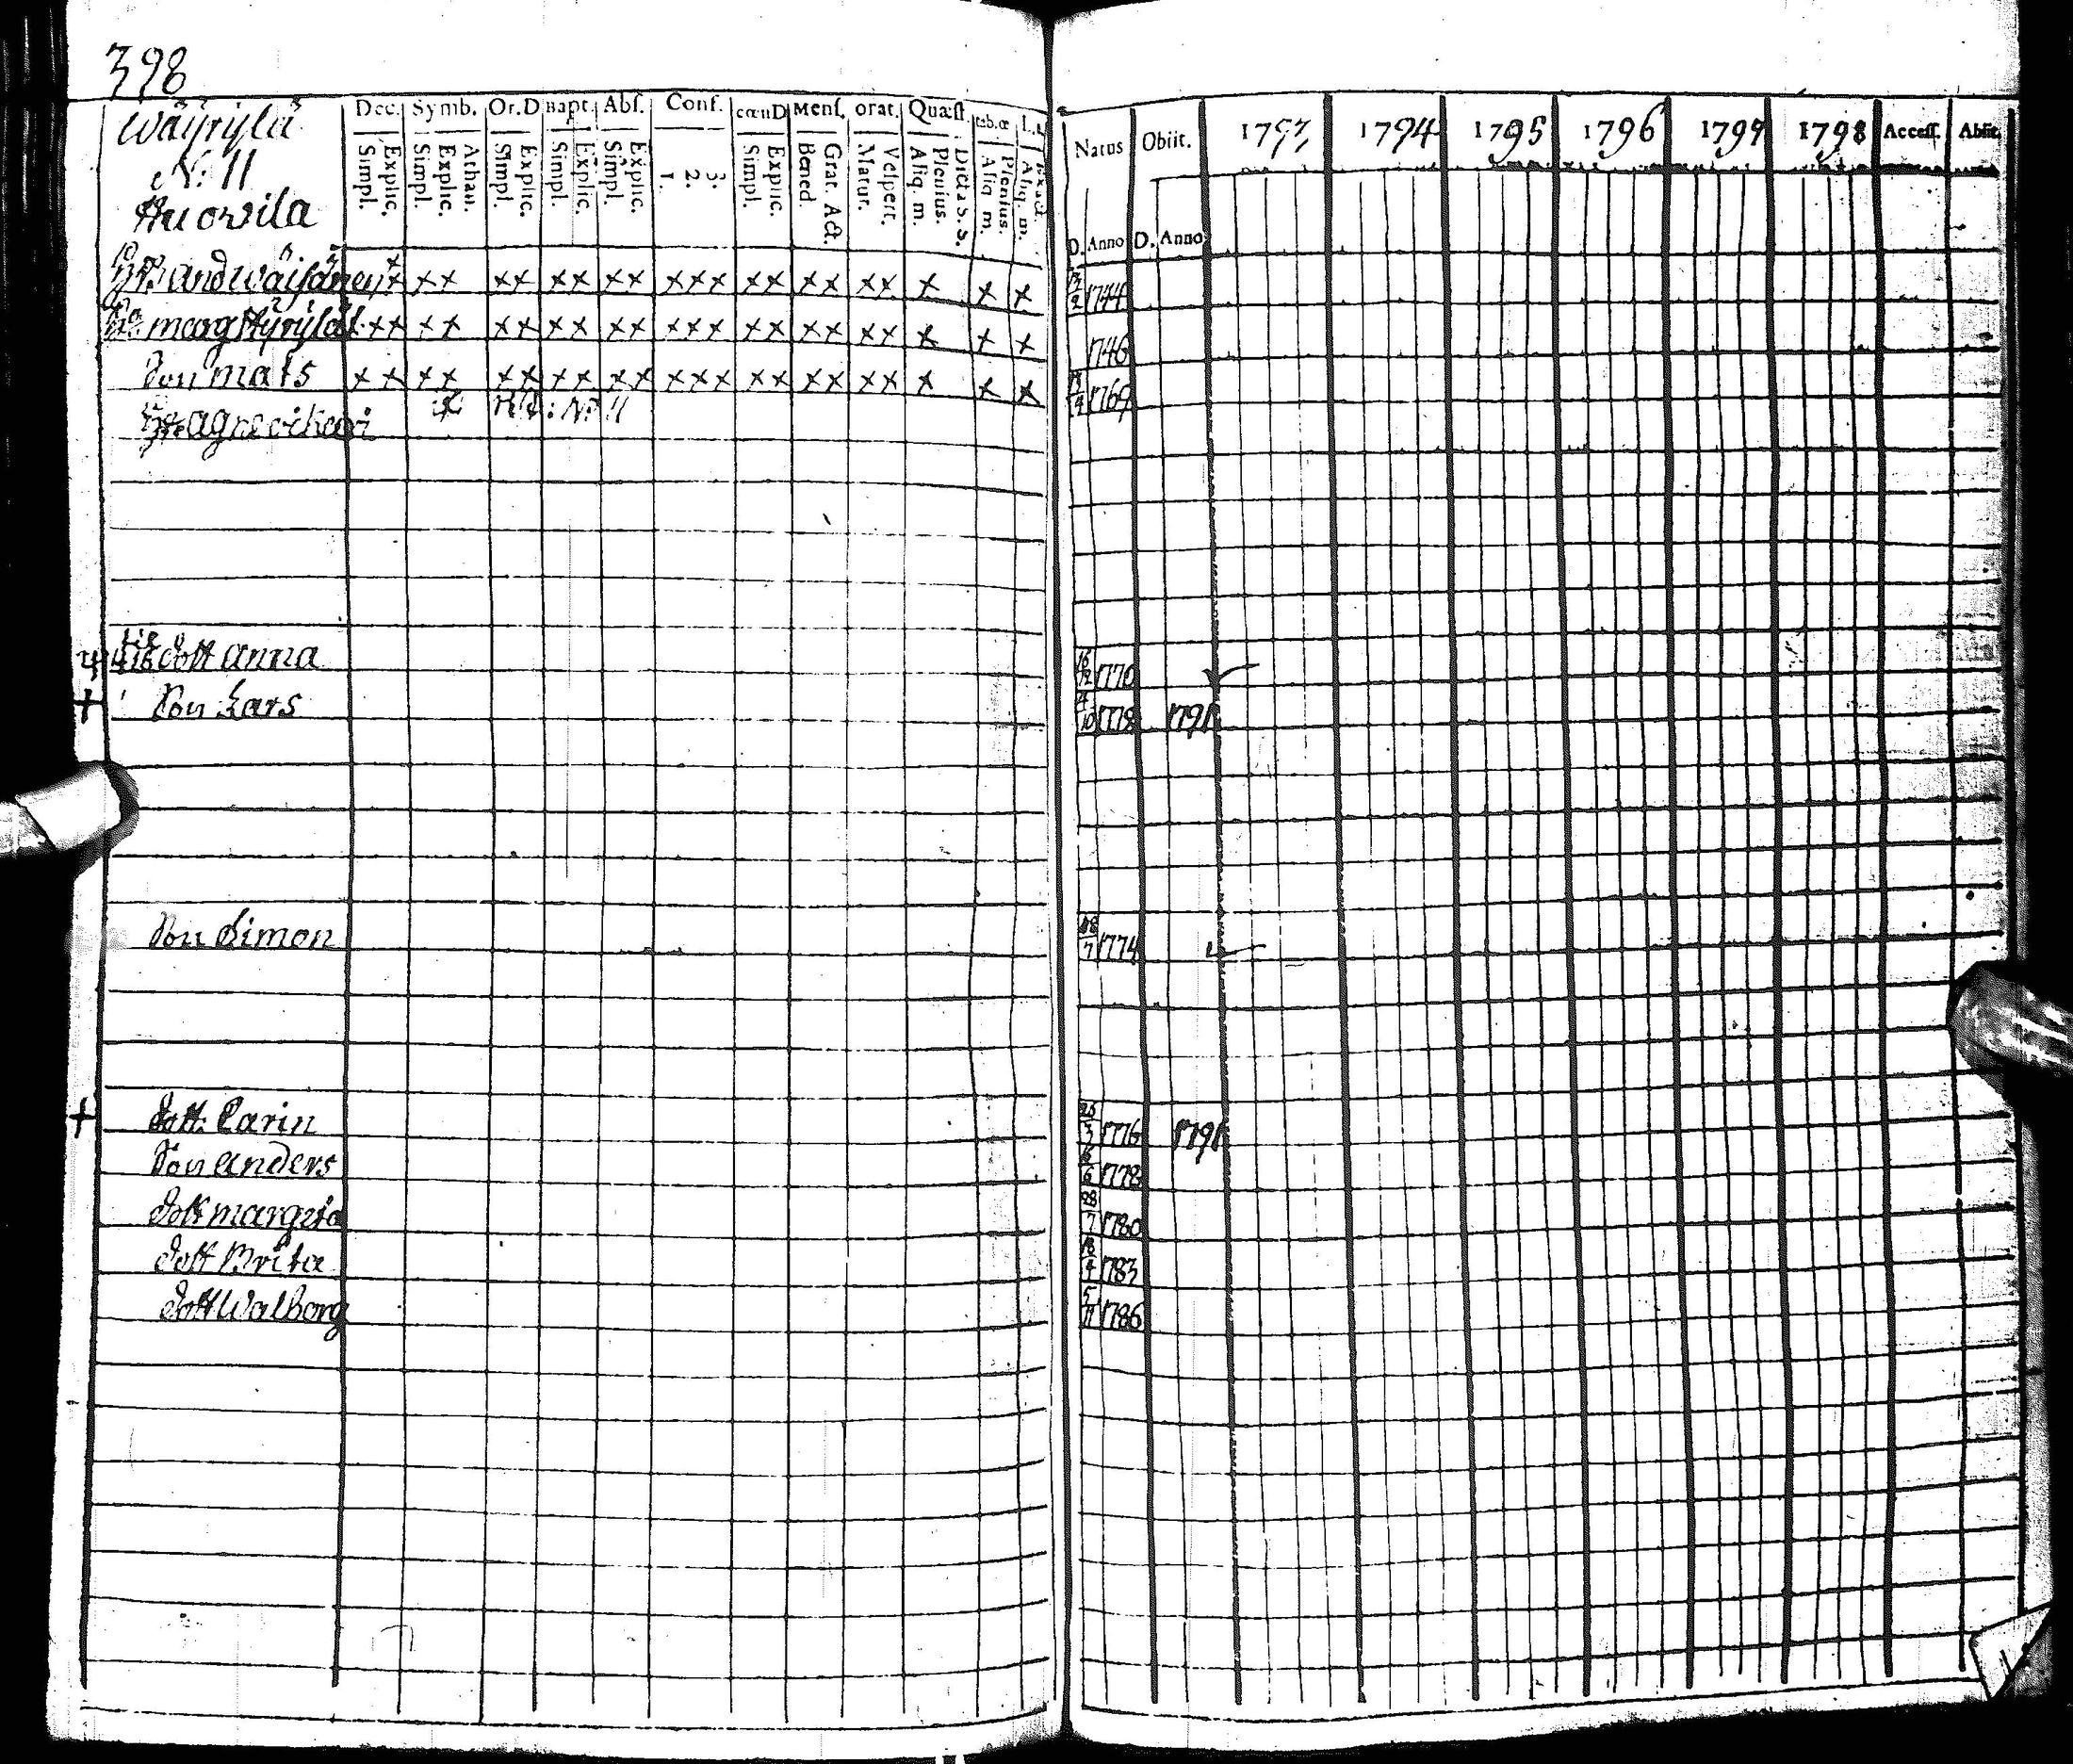 398
Wäyrylä
N: 11
Huowila
Dec. Symb. Or.D Bapt. Abſ. Conf. cœnD Menſ. orat. Quæſt. tab.œ
Simpl. Explic. Simpl. Explic. Athan. Simpl. Explic. Simpl. Explic. Simpl. Explic. 1. 2. 3. Simpl. Explic. Bened. Grat. Act. Matur. Veſpert. Aliq. m. Plenius. Dicta S. S. Aliq. m. Plenius. Aliq. m.
Natus Obiit. 1793 1794 1795 1796 1797 1798 Acceſſ. Abiit.
D. Anno D. Anno
And Wäisänen x x x x x x x x x x x x x x x x x x x x x x 2 1744
marg x x x x x x x x x x x x x x x x x x x x x x 1746
Son mats x x x x x x x x x x x x x x x x x x x x x x 4 1769
N: 11
agne
dott anna 16 12 1770
+ Son Lars 10 1778 1791
Son Simon 7 1774
+ dott. Carin 3 1776 1791
Son anders 6 1778
dott margeta 28 7 1780
dott Brita 18 4 1783
dott Walborg 5 11 1786